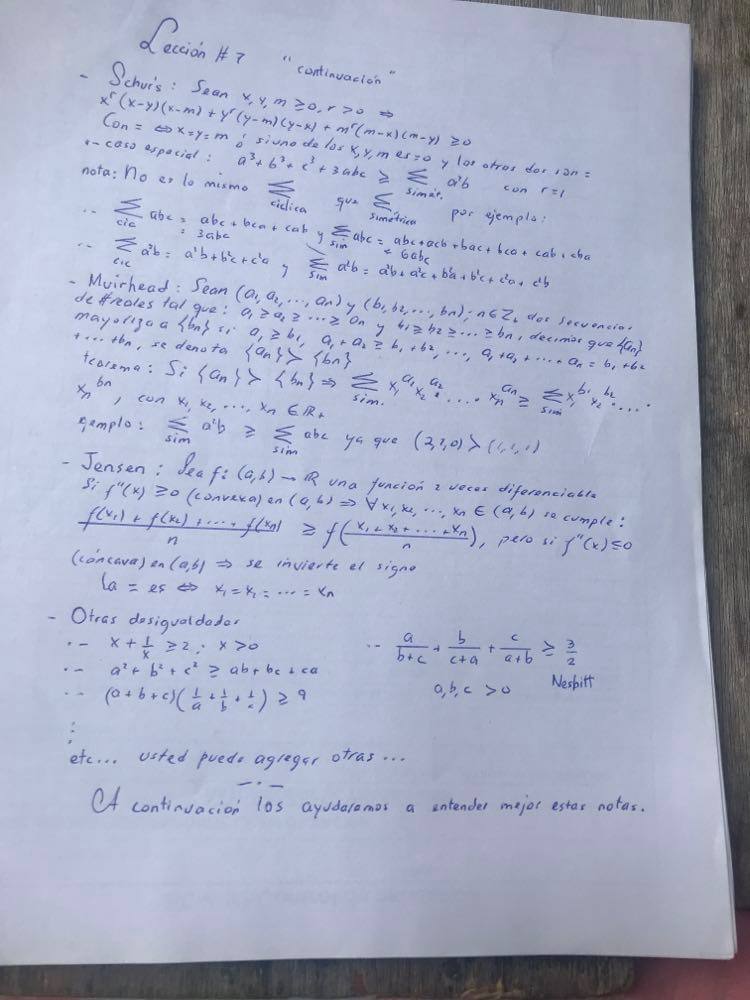 Lección #7 "continuación"
- Schur's: Sean x, y, m ≥ 0, r > 0 ⇔
x^r(x-y)(x-m) + y^r(y-m)(y-x) + m^r(m-x)(m-y) ≥ 0
Con = ⇔ x=y=m ó si uno de los x,y,m es=0 y los otros dos son =
·- caso especial: a³+b³+c³+3abc ≥ Σ_simét. a²b con r=1
nota: No es lo mismo Σ_cíclica que Σ_simétrica por ejemplo:
·- Σ_cic abc = abc + bca + cab y Σ_sim abc = abc+acb+bac+bca+cab+cba
= 3abc = 6abc
·- Σ_cic a²b = a²b+b²c+c²a y Σ_sim a²b = a²b+a²c+b²a+b²c+c²a+c²b
- Muirhead: Sean (a₁, a₂, ..., aₙ) y (b₁, b₂, ..., bₙ); n∈Z₊ dos secuencias
de #reales tal que: a₁ ≥ a₂ ≥ ... ≥ aₙ y b₁ ≥ b₂ ≥ ... ≥ bₙ, decimos que {aₙ}
mayoriza a {bₙ} si a₁ ≥ b₁, a₁+a₂ ≥ b₁+b₂, ..., a₁+a₂+...+aₙ = b₁+b₂
+...+bₙ, se denota {aₙ} > {bₙ}
teorema: Si {aₙ} > {bₙ} ⇒ Σ_sim. x₁^a₁ x₂^a₂ .... xₙ^aₙ ≥ Σ_sim x₁^b₁ x₂^b₂ ....
xₙ^bₙ, con x₁, x₂, ..., xₙ ∈ ℝ₊
ejemplo: Σ_sim a²b ≥ Σ_sim abc ya que (2,1,0) > (1,1,1)
- Jensen: Sea f: (a,b) → ℝ una función 2 veces diferenciable
Si f''(x) ≥ 0 (convexa) en (a,b) ⇒ ∀ x₁, x₂, ..., xₙ ∈ (a,b) se cumple:
(f(x₁) + f(x₂) + ... + f(xₙ))/n ≥ f((x₁+x₂+...+xₙ)/n), pero si f''(x) ≤ 0
(cóncava) en (a,b) ⇒ se invierte el signo
la = es ⇔ x₁ = x₂ = ... = xₙ
- Otras desigualdades
·- x + 1/x ≥ 2; x>0
·- a² + b² + c² ≥ ab + bc + ca
·- (a+b+c)(1/a + 1/b + 1/c) ≥ 9
·- a/(b+c) + b/(c+a) + c/(a+b) ≥ 3/2
a,b,c > 0 Nesbitt
⋮
etc... usted puede agregar otras...
—·—
A continuación los ayudaremos a entender mejor estas notas.